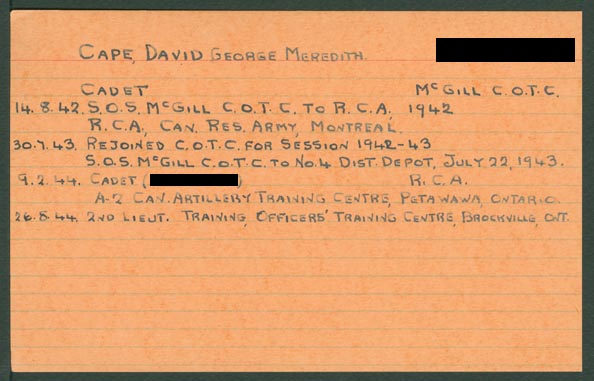 CAPE, DAVID GEORGE MEREDITH.
CADET McGILL C.O.T.C.
14.8.42. S.O.S. McGILL C.O.T.C. TO R.C.A. 1942
R.C.A., CAN. RES. ARMY, MONTREAL.
30.7.43. REJOINED C.O.T.C. FOR SESSION 1942-43
S.O.S. McGILL C.O.T.C. TO No.4 DIST. DEPOT, JULY 22, 1943.
9.2.44. CADET ( ) R.C.A.
A-2 CAN. ARTILLERY TRAINING CENTRE, PETAWAWA, ONTARIO.
26.8.44. 2ND LIEUT. TRAINING, OFFICERS' TRAINING CENTRE, BROCKVILLE, ONT.